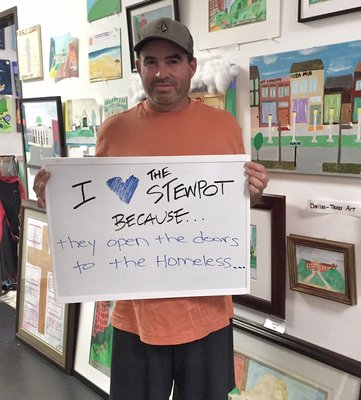 I ♥ THE
STEWPOT
BECAUSE...
they open the doors
to the Homeless...
Dallas-Texas Art